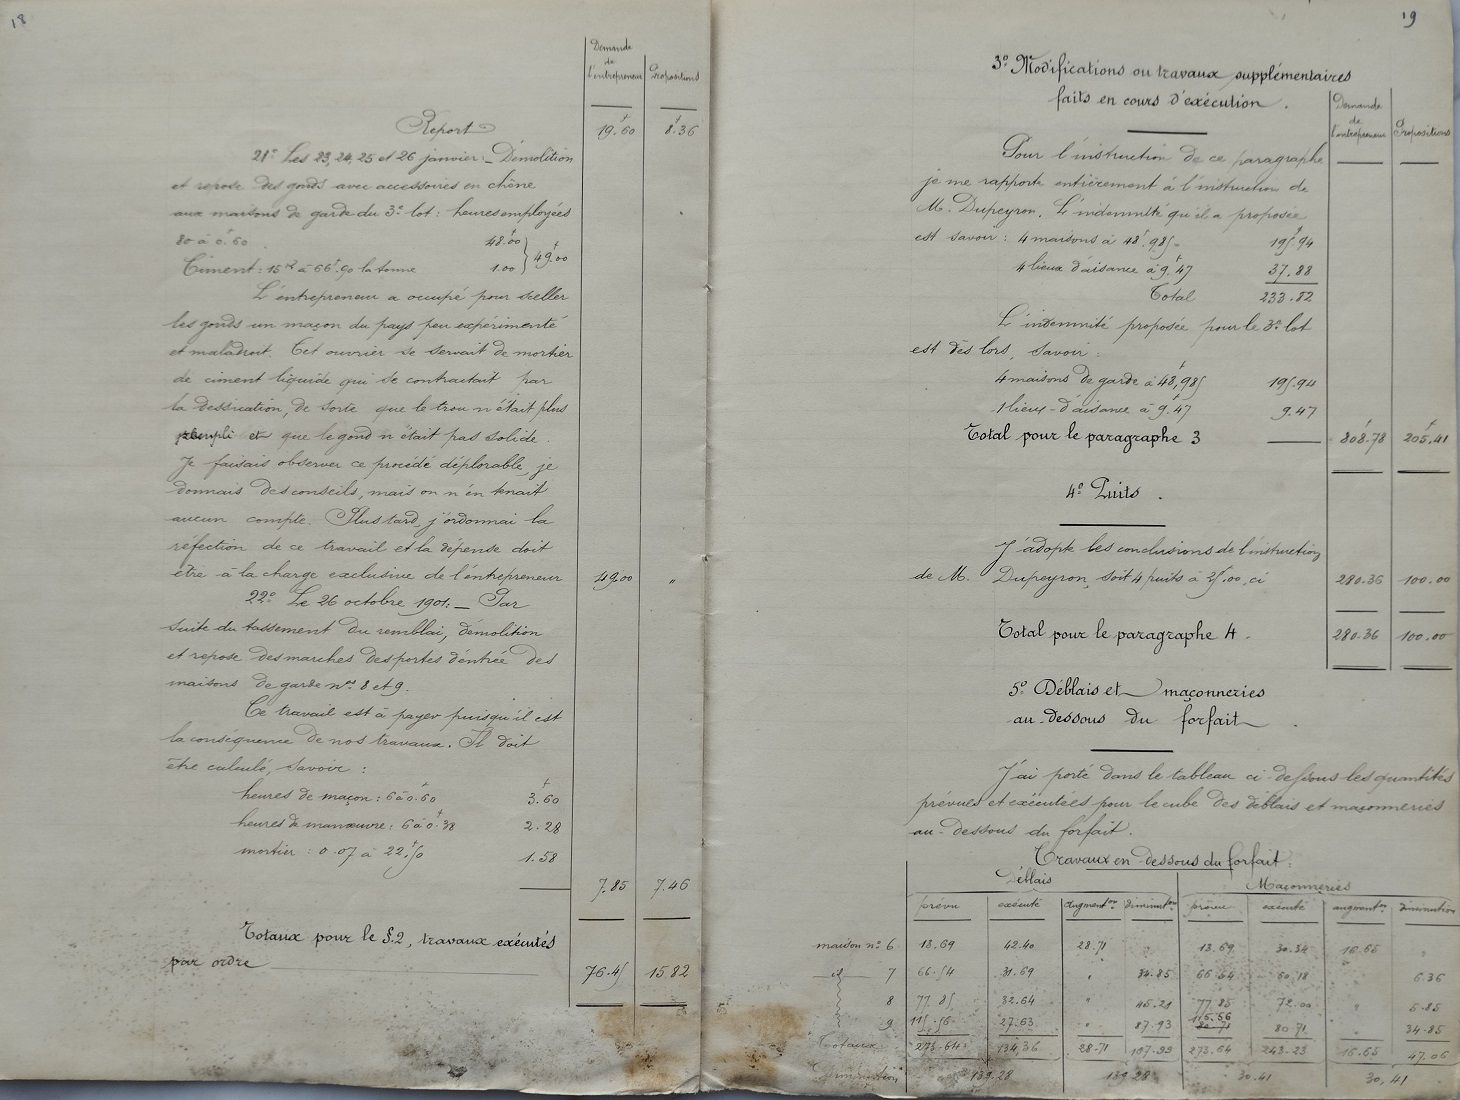 18
Demande
de
l'entrepreneur
Propositions
Report
19.60
8.36
21° Les 23, 24, 25 et 26 janvier._ Démolition
et repose des gonds avec accessoires en chêne
aux maisons de garde du 3e lot : heures employées
80 à 0.60
48.00
49.00
Ciment : 15k à 66f.90 la tonne
1.00
L'entrepreneur a occupé pour sceller
les gonds un maçon du pays peu expérimenté
et maladroit. Cet ouvrier se servait de mortier
de ciment liquide qui se contractait par
la dessication, de sorte que le trou n'était plus
rempli et que le gond n'était pas solide.
Je faisais observer ce procédé déplorable, je
donnais des conseils, mais on n'en tenait
aucun compte. Plus tard, j'ordonnai la
réfection de ce travail et la dépense doit
être à la charge exclusive de l'entrepreneur
49.00
"
22° Le 26 octobre 1901._ Par
suite du tassement du remblai, démolition
et repose des marches des portes d'entrée des
maisons de garde nos 8 et 9.
Ce travail est à payer puisqu'il est
la conséquence de nos travaux. Il doit
être calculé, savoir :
heures de maçon : 6 à 0.60
3.60
heures de manœuvre : 6 à 0.38
2.28
mortier : 0.07 à 22.50
1.58
7.85
7.46
Totaux pour le §.2, travaux exécutés
par ordre
76.45
15.82
19
3° Modifications ou travaux supplémentaires
faits en cours d'exécution.
Demande
de
l'entrepreneur
Propositions
Pour l'instruction de ce paragraphe
je me rapporte entièrement à l'instruction de
M. Dupeyron. L'indemnité qu'il a proposée
est savoir : 4 maisons à 48f.985.
195.94
4 lieux d'aisance à 9.47
37.88
Total
233.82
L'indemnité proposée pour le 3e lot
est dès lors, savoir :
4 maisons de garde à 48,985
195.94
1 lieux-d'aisance à 9.47
9.47
Total pour le paragraphe 3
808.78
205.41
4° Puits.
J'adopte les conclusions de l'instruction
de M. Dupeyron, soit 4 puits à 25.00, ci
280.36
100.00
Total pour le paragraphe 4.
280.36
100.00
5° Déblais et maçonneries
au-dessous du forfait.
J'ai porté dans le tableau ci-dessous les quantités
prévues et exécutées pour le cube des déblais et maçonneries
au-dessous du forfait.
Travaux en dessous du forfait.
Déblais
Maçonneries
prévu exécuté augmenton diminuton prévu exécuté augmenton diminution
maison n° 6 13.69 42.40 28.71 " 13.69 30.34 16.65 "
_id_ 7 66.54 31.69 " 34.85 66.54 60.18 " 6.36
8 77.85 32.64 " 45.21 77.85 72.00 " 5.85
9 115.56 27.63 " 87.93 115.56 80.71 " 34.85
Totaux 273.64 134,36 28.71 167.99 273.64 243.23 16.65 47.06
Diminution 139.28 139.28 30.41 30,41